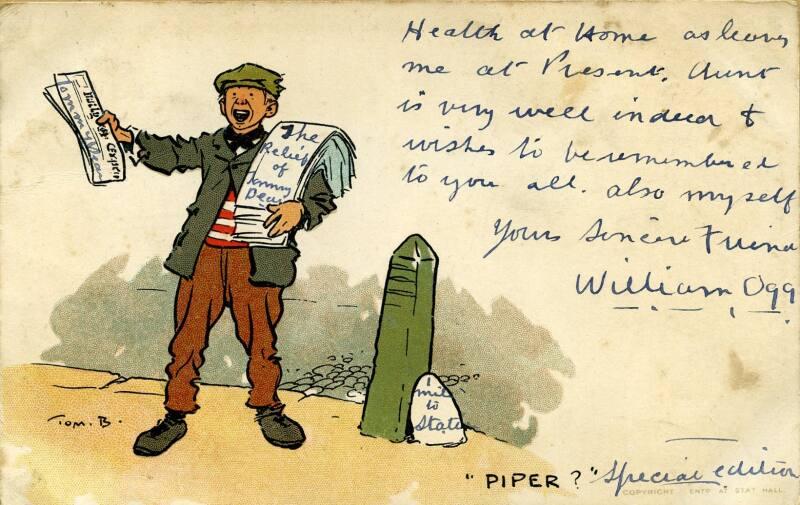 Health at Home as leaves
me at Present. Aunt
is very well indeed &
wishes to be remembered
to you all. also myself
Yours Sincere Friend
William Ogg
The
Relief
of
Tommy
Dear
Tommy
1
mile
to
State
TOM. B.
"PIPER?" Special edition
COPYRIGHT ENTD AT STAT HALL